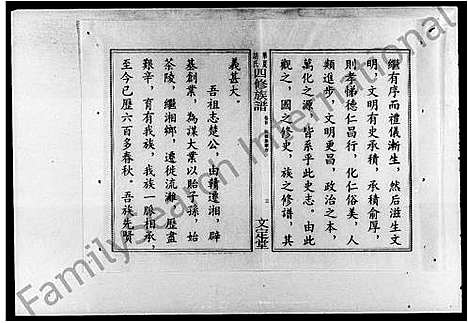 繼有序而禮儀漸生，然後滋生文
明，文明有史承積，承積俞厚，
則孝悌德仁昌行，化仁俗美，人
類進步，文明更昌，政治之本，
萬化之源，皆系乎此史志。由此
觀之，國之修史，族之修譜，其
四修族譜
文定堂
義甚大。
吾祖志楚公，由贛遷湘，辟
基創業，為謀大業以貽子孫，始
荼陵，繼湘鄉，遷徙流離，歷盡
艱辛，育有我族，我族一脈相承，
至今已歷六百多春秋。吾族先賢
Family Search International